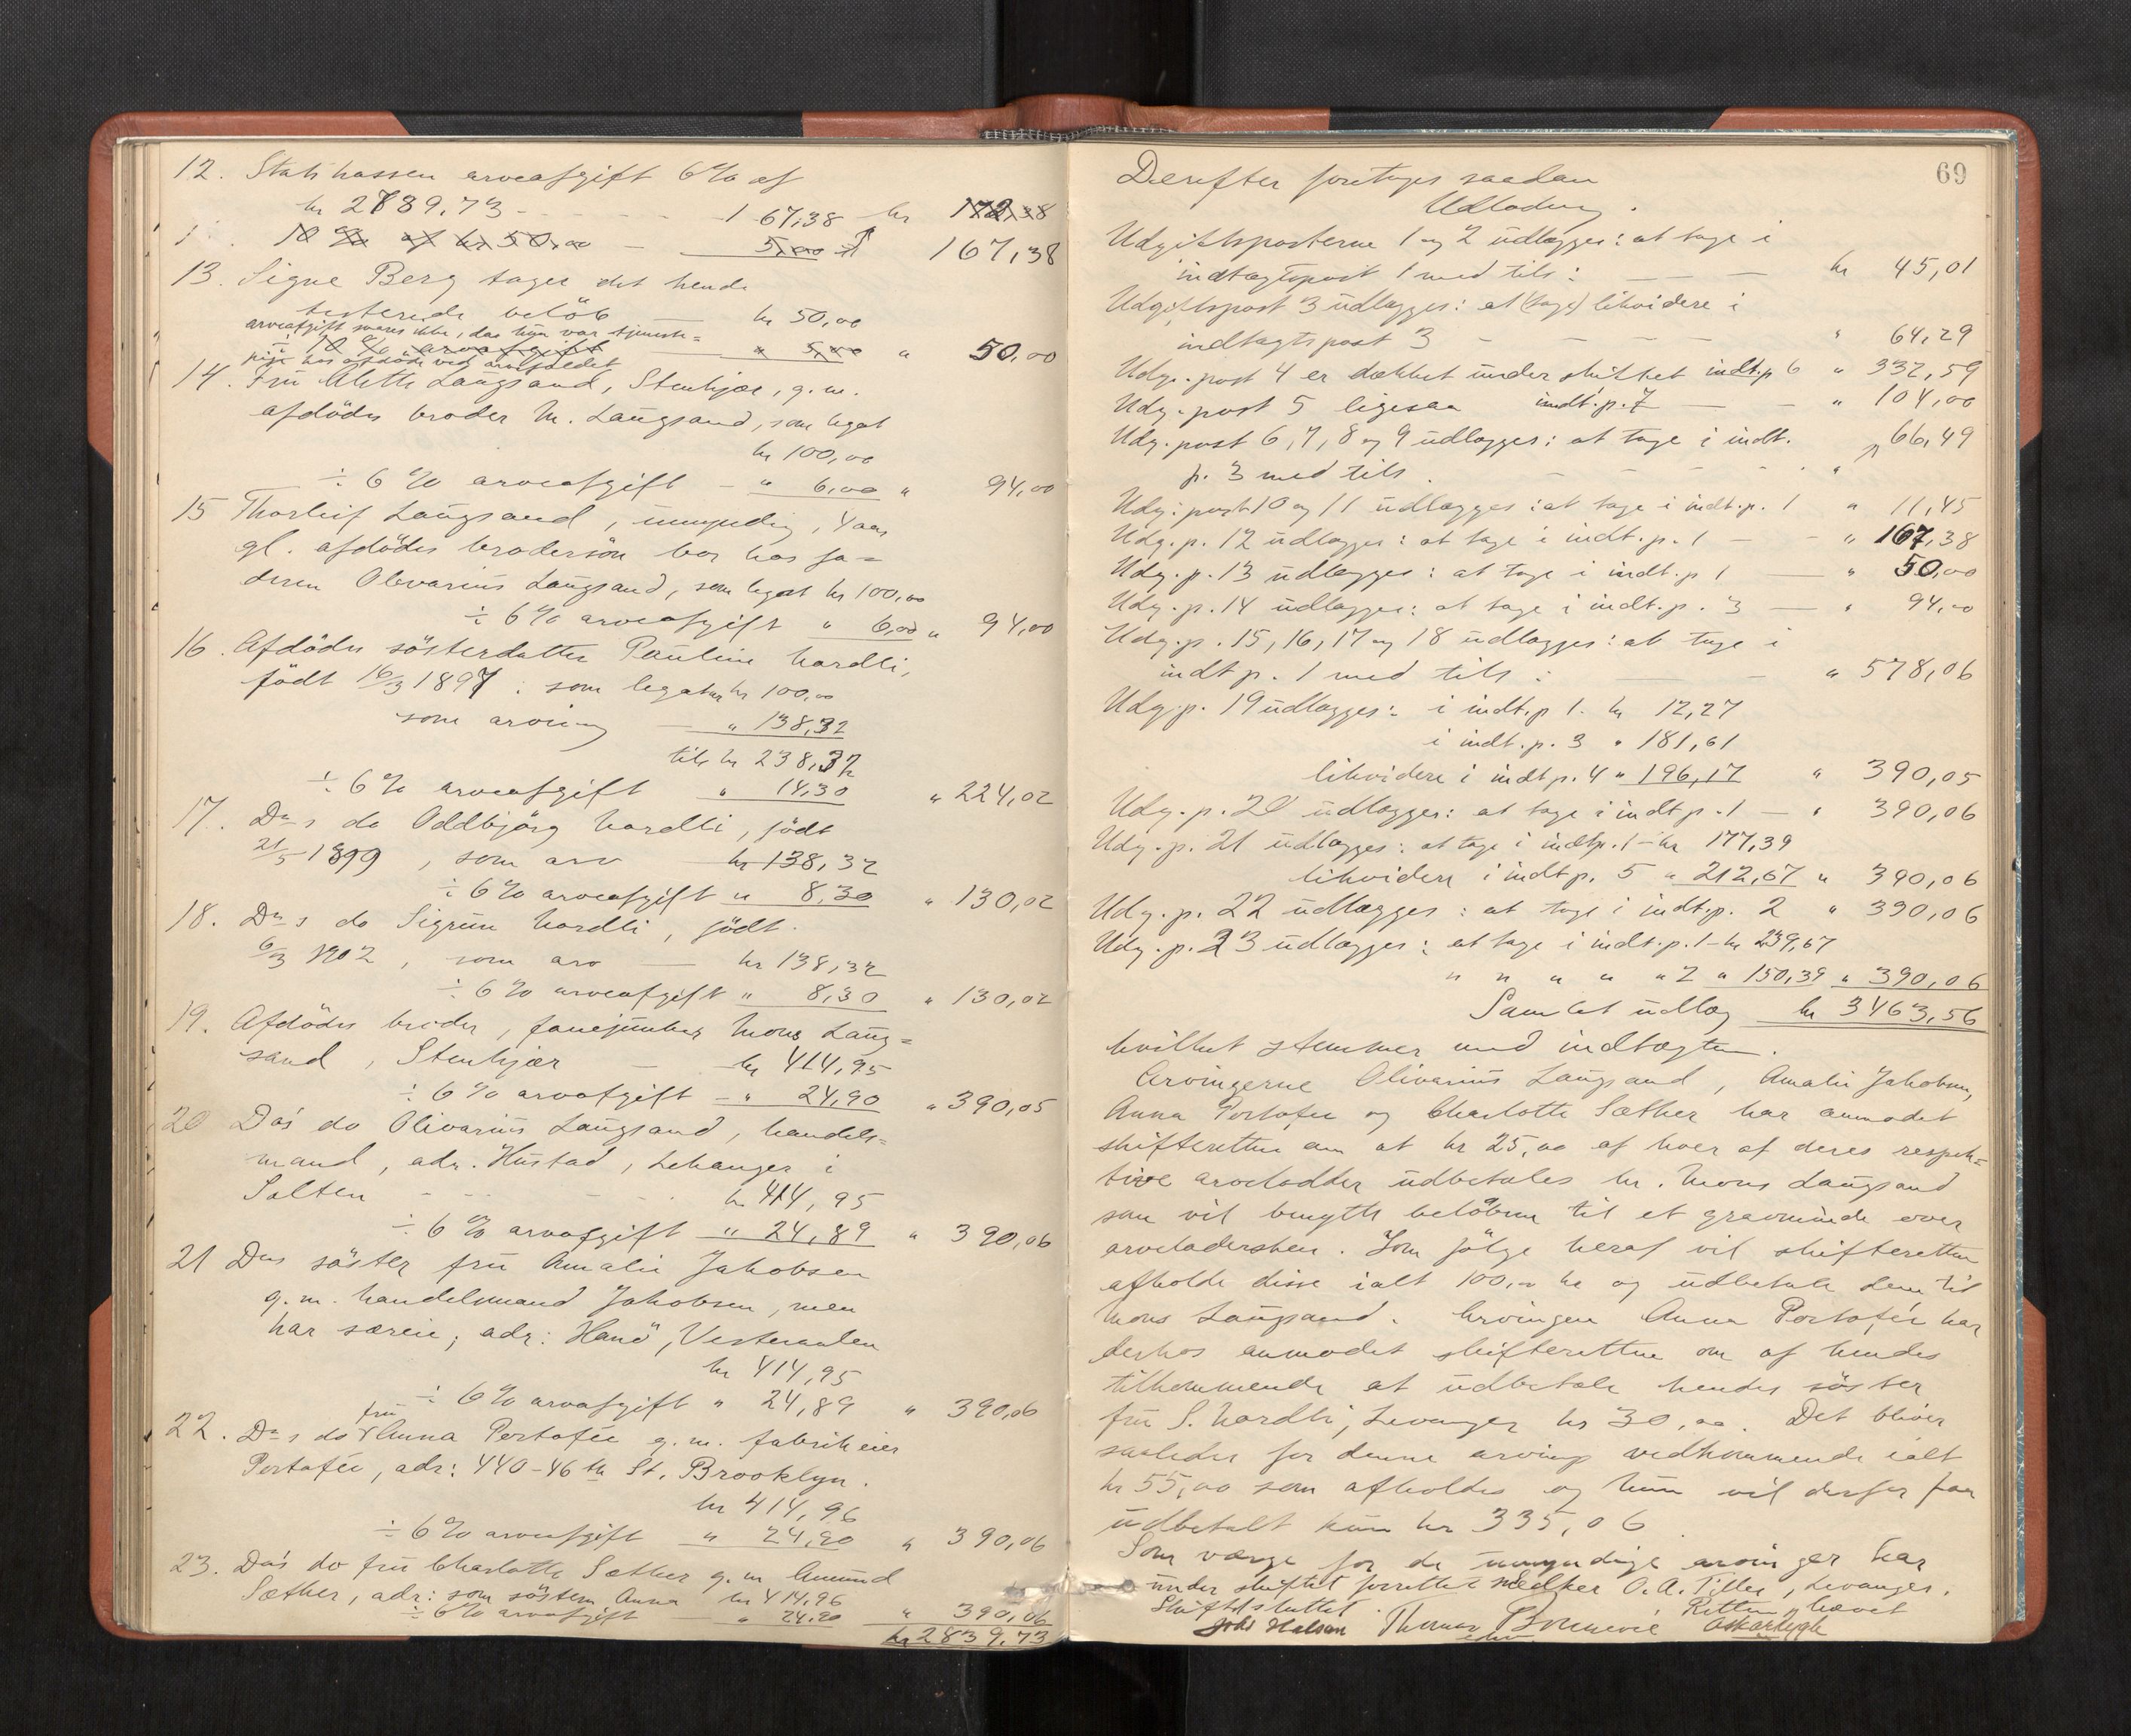 12. Statskassen arveafgift 6% af
kr 2789,73 - - - - - 167,38 kr 172,38
10 % af kr 50,00 — 5,00 167,38
13. Signe Berg tager det hende
testerede beløb — kr 50,00
arveafgift svares ikke, da hun var tjeneste=
÷ 10 % arveafgift — " 5,00 " 50,00
pige hos afdøde ved arvefaldet
14. Fru Alette Laugsand, Stenkjær, g.m.
afdødes broder M. Laugsand, som legat
kr 100,00
÷ 6 % arveafgift - " 6,00 " 94,00
15 Thorleif Laugsand, umyndig, 4 aar
gl. afdødes brodersøn bor hos fa=
deren Olivarius Laugsand, som legat kr 100,00
÷ 6% arveafgift " 6,00 " 94,00
16. Afdødes søsterdatter Pauline Hardli,
født 16/3 1897 : som legatar kr 100,00
som arving — " 138,32
tils kr 238,32
÷ 6 % arveafgift " 14,30 " 224,02
17. Ds do Oddbjørg Hardli, født
21/5 1899, som arv — kr 138,32
÷ 6 % arveafgift " 8,30 " 130,02
18. Ds do Sigrun Hardli, født
6/3 1902, som arv — kr 138,32
÷ 6 % arveafgift " 8,30 " 130,02
19. Afdødes broder, fanejunker Mons Laug=
sand, Stenkjær — kr 414,95
÷ 6 % arveafgift - " 24,90 " 390,05
20 Ds do Olivarius Laugsand, handels=
mand, adr. Hustad, i
Salten - - - - kr 414,95
÷ 6 % arveafgift " 24,89 " 390,06
21 Ds søster fru Amalie Jakobsen
g.m. handelsmand Jakobsen, men
har særeie; adr: Hanö, Vesteraalen
kr 414,95
÷ 6 % arveafgift " 24,89 " 390,06
22. Ds do fru Anna Portofée g.m. fabrikeier
Portofée, adr: 440-46th St. Brooklyn.
kr 414,96
÷ 6 % arveafgift " 24,90 " 390,06
23. Ds do fru Charlotte Sæther g.m. Amund
Sæther, adr: som søsteren Anna kr 414,96
÷ 6% arveafgift — " 24,90 " 390,06
kr 2839,73
69
Derefter foretages saadan
Udlodning.
Udgiftsposterne 1 og 2 udlægges: at tage i
indtægtspost 1 med tils: — — kr 45,01
Udgiftspost 3 udlægges: at (tage) likvidere i
indtægtspost 3 - - - - " 64,29
Udg.post 4 er dækket under skiftet indt.p 6 " 332,59
Udg.post 5 ligesaa indt.p.7 — - " 104,00
Udg.post 6, 7, 8 og 9 udlægges: at tage i indt. 66,49
p. 3 med tils. - - - - - "
Udg.post 10 og 11 udlægges: at tage i indt.p. 1 " 11,45
Udg.p. 12 udlægges: at tage i indt.p. 1 — - " 167,38
Udg.p. 13 udlægges: at tage i indt.p 1 — " 50,00
Udg.p. 14 udlægges: at tage i indt.p. 3 — " 94,00
Udg.p. 15, 16, 17 og 18 udlægges: at tage i
indt p. 1 med tils: — — " 578,06
Udg.p. 19 udlægges: i indt.p 1. kr 12,27
i indt.p. 3 " 181,61
likvidere i indt p. 4 " 196,17 " 390,05
Udg.p. 20 udlægges: at tage i indt p. 1 — " 390,06
Udg.p. 21 udlægges: at tage i indtp. 1 - kr 177,39
likvidere i indt p. 5 " 212,67 " 390,06
Udg.p. 22 udlægges: at tage i indt.p. 2 " 390,06
Udg.p. 23 udlægges: at tage i indt.p. 1 - kr 239,67
" " " " " 2 " 150,39 " 390,06
Samlet udlæg kr 3463,56
hvilket stemmer med indtægten.
Arvingerne Olivarius Laugsand, Amalie Jakobsen,
Anna Portofée og Charlotte Sæther har anmodet
skifteretten om at kr 25,00 af hver af deres respek=
tive arvelodder udbetales hr. Mons Laugsand
som vil benytte beløbene til et gravminde over
arveladersken. Som følge heraf vil skifteretten
afholde disse ialt 100,00 kr og udbetale dem til
Mons Laugsand. Arvingen Anna Portofée har
derhos anmodet skifteretten om af hendes
tilkommende at udbetale hendes søster
fru S. Hardli, Levanger kr 30,00. Det bliver
saaledes for denne arving vedkommende ialt
kr 55,00 som afholdes og hun vil derfor faa
udbetalt kun kr 335,06
Som værge for de umyndige arvinger har
under skiftet forrettet O. A. Tiller, Levanger.
Skiftet sluttet. Retten hævet
Johs Halsan Thomas